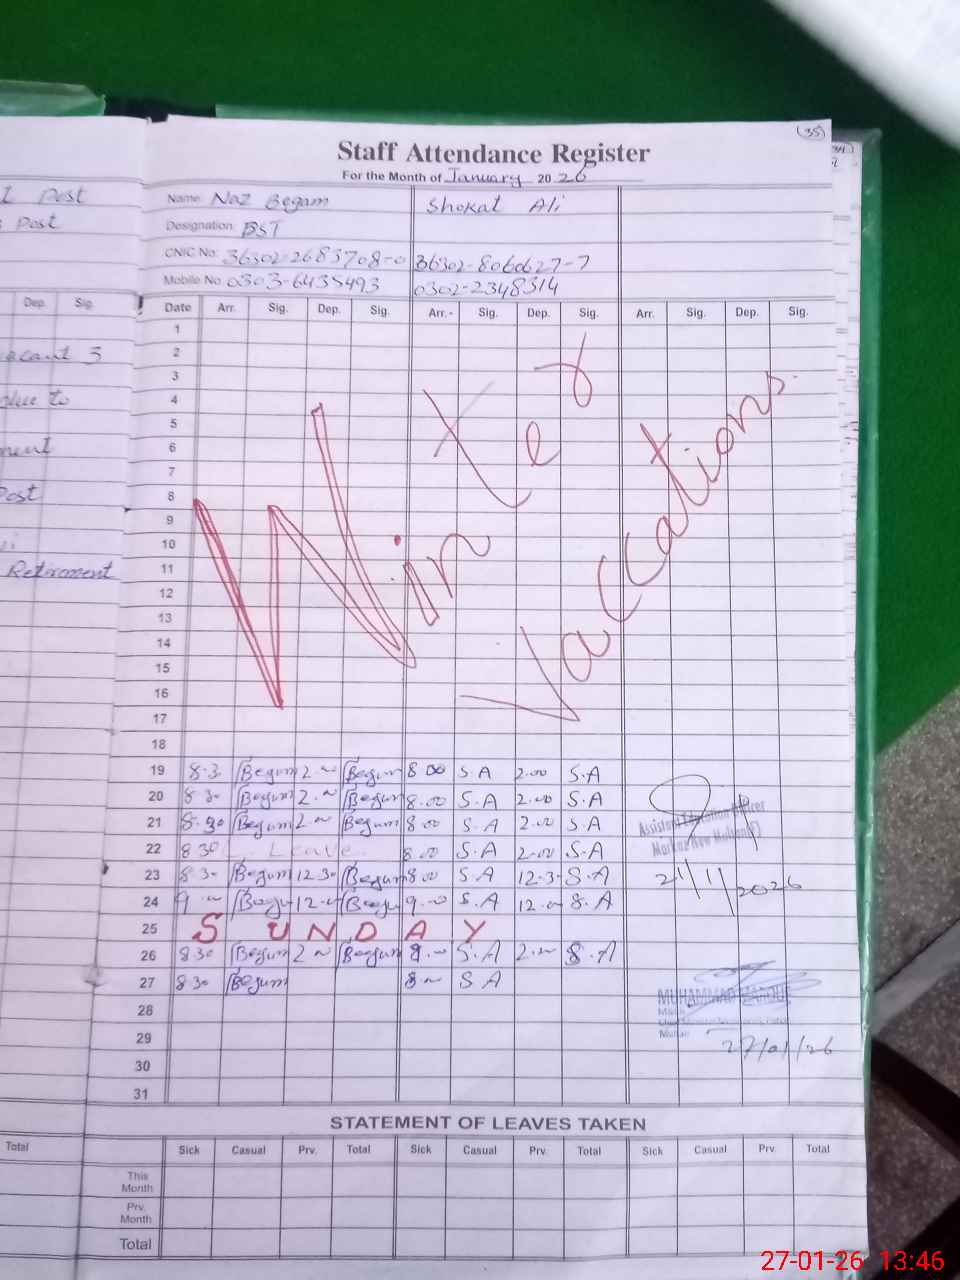 35
Staff Attendance Register
For the Month of January 2026
Name: Naz Begam Shokat Ali
Designation: BST
CNIC No: 36302-2683708-0 36302-8060627-7
Mobile No. 0303-6435493 0302-2348314
Date Arr. Sig. Dep. Sig. Arr. Sig. Dep. Sig. Arr. Sig. Dep. Sig.
1
2
3
4
5
6
7
8
9
10
11
12
13
14
15
16
17
18
Winter
Vaccations.
19 8.3 Begum 2.00 Begum 8 00 S.A 2.00 S.A
20 8 30 Begum 2.00 Begum 8.00 S.A 2.00 S.A
21 8.30 Begum 2.00 Begum 8.00 S.A 2.00 S.A
22 8 30 L. Leave. 8.00 S.A 2.00 S.A
23 8 30 Begum 12 30 Begum 8.00 S.A 12.3 S.A
24 9 00 Begum 12.00 Begum 9.00 S.A 12.00 S.A
25 SUNDAY
26 8 30 Begum 2 00 Begum 8.00 S.A 2.00 S.A
27 8 30 Begum 8 00 S A
28
29
30
31
Assistant Education Officer
Markaz New Multan(F)
21/1/2026
MUHAMMAD
27/01/26
STATEMENT OF LEAVES TAKEN
Sick Casual Prv. Total Sick Casual Prv. Total Sick Casual Prv. Total
This
Month
Prv.
Month
Total
Post
Post
Dep. Sig.
due to
Post
Retirement
Total
27-01-26 13:46